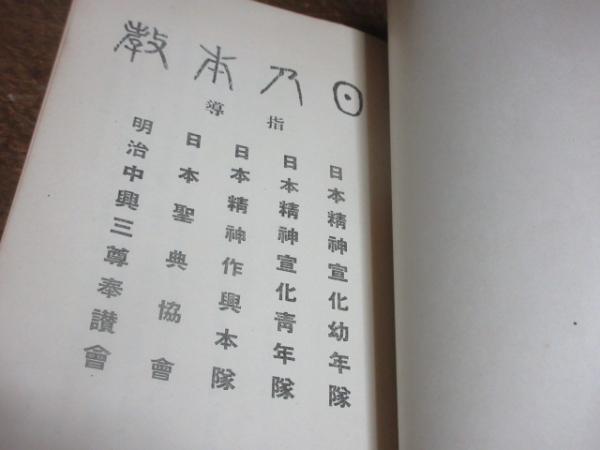 日乃本教
指導
日本精神宣化幼年隊
日本精神宣化靑年隊
日本精神作興本隊
日本聖典協會
明治中興三尊奉讃會